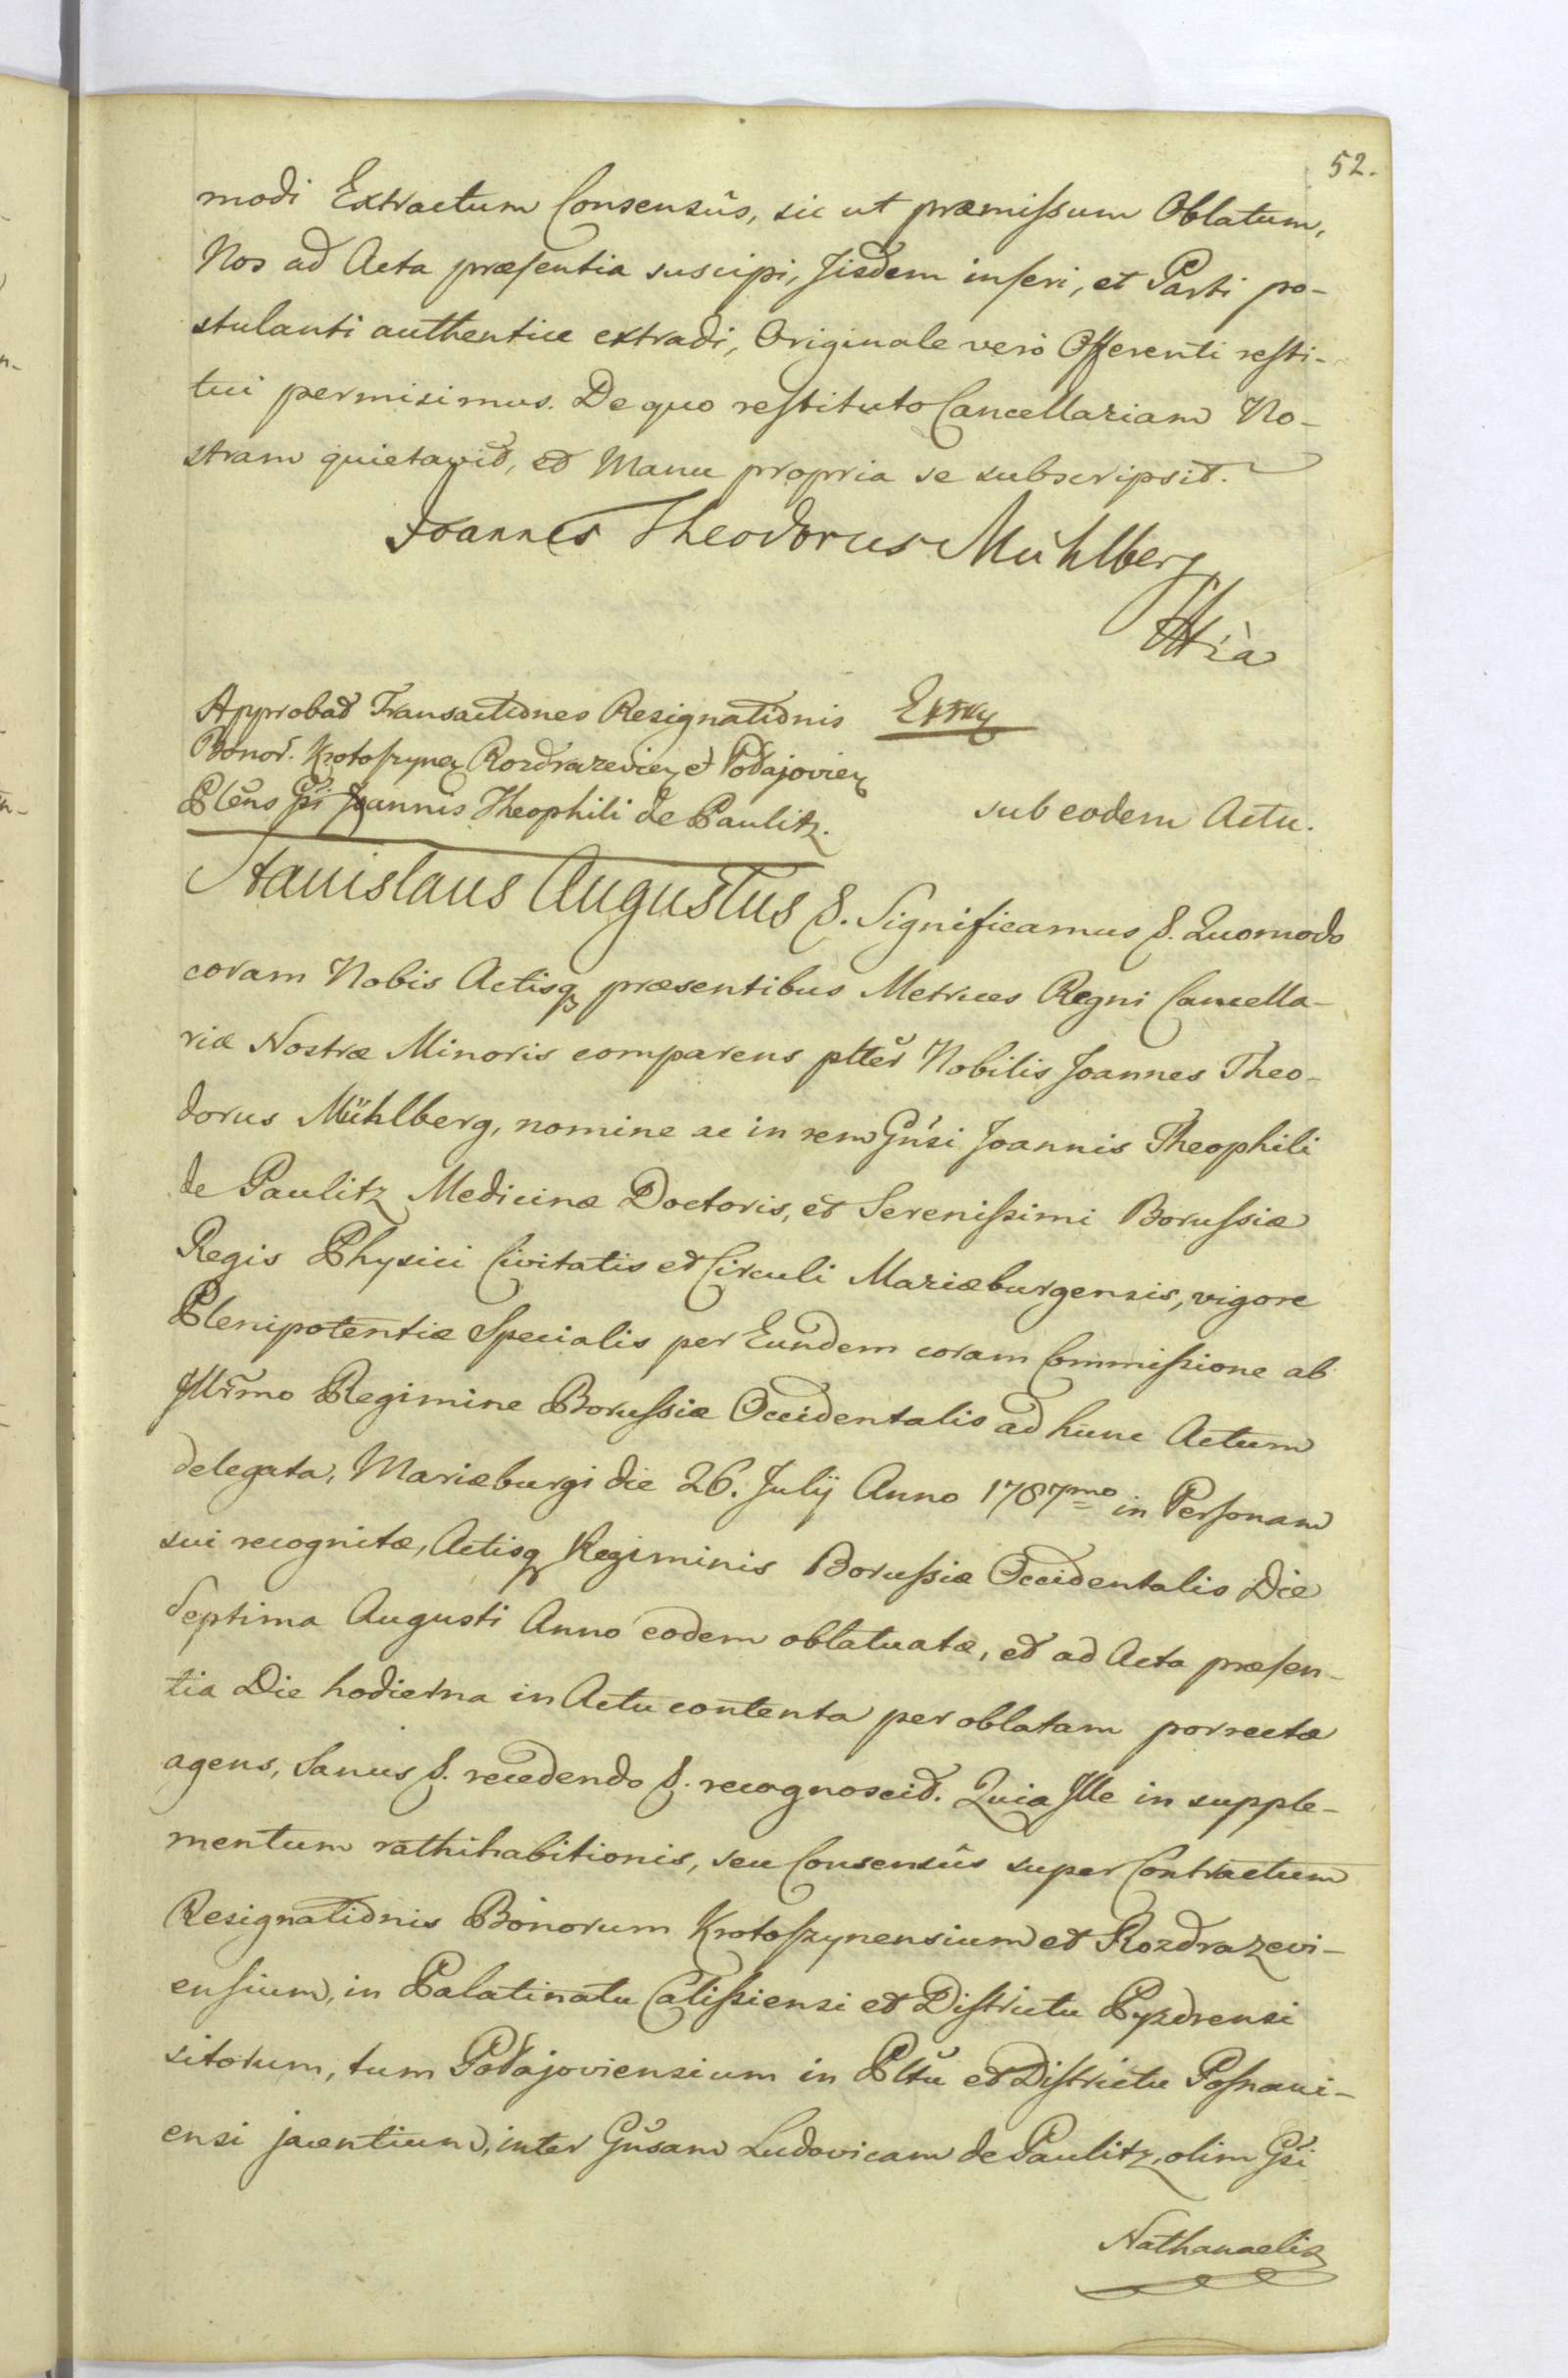 52.
modi Extractum Consensûs, sic ut præmissum Oblatum,
Nos ad Acta præsentia suscipi, Iisdem inseri, et Parti po-
stulanti authentice extradi, Originale verò Offerenti resti-
tui permisimus. De quo restituto Cancellariam No-
stram quietavit, et Manu propria se subscripsit.
Joannes Theodorus Mühlberg
Approbat Transactiones Resignationis
Bonor. Krotoszynen Rozdrazevien et Podajovien
Plēns Gsi Joannis Theophili de Paulitz.
sub eodem Actu.
Stanislaus Augustus &. Significamus &. Quomodo
coram Nobis Actisq præsentibus Metrices Regni Cancella-
riæ Nostræ Minoris comparens plter Nobilis Joannes Theo-
dorus Mühlberg, nomine ac in rem Gnsi Joannis Theophili
de Paulitz Medicinæ Doctoris, et Serenissimi Borussiæ
Regis Physici Civitatis et Circuli Mariæburgensis, vigore
Plenipotentiæ Specialis per Eundem coram Commissione ab
Illrmo Regimine Borussiæ Occidentalis ad hunc Actum
delegata, Mariæburgi die 26. Julij Anno 1787mo in Personam
sui recognitæ, Actisq Regiminis Borussiæ Occidentalis Die
Septima Augusti Anno eodem oblatuatæ, et ad Acta præsen-
tia Die hodierna in Actu contenta per oblatam porrectæ
agens, Sanus &. recedendo &. recognoscit. Quia Ille in supple-
mentum rathihabitionis, seu Consensûs super Contractum
Resignationis Bonorum Krotoszynensium et Rozdrazevi-
ensium, in Palatinatu Calissiensi et Districtu Pyzdrensi
sitorum, tum Podajoviensium in Pltu et Districtu Posnani-
ensi jacentium, inter Gnsam Ludovicam de Paulitz, olim Gsi
Nathanaelis